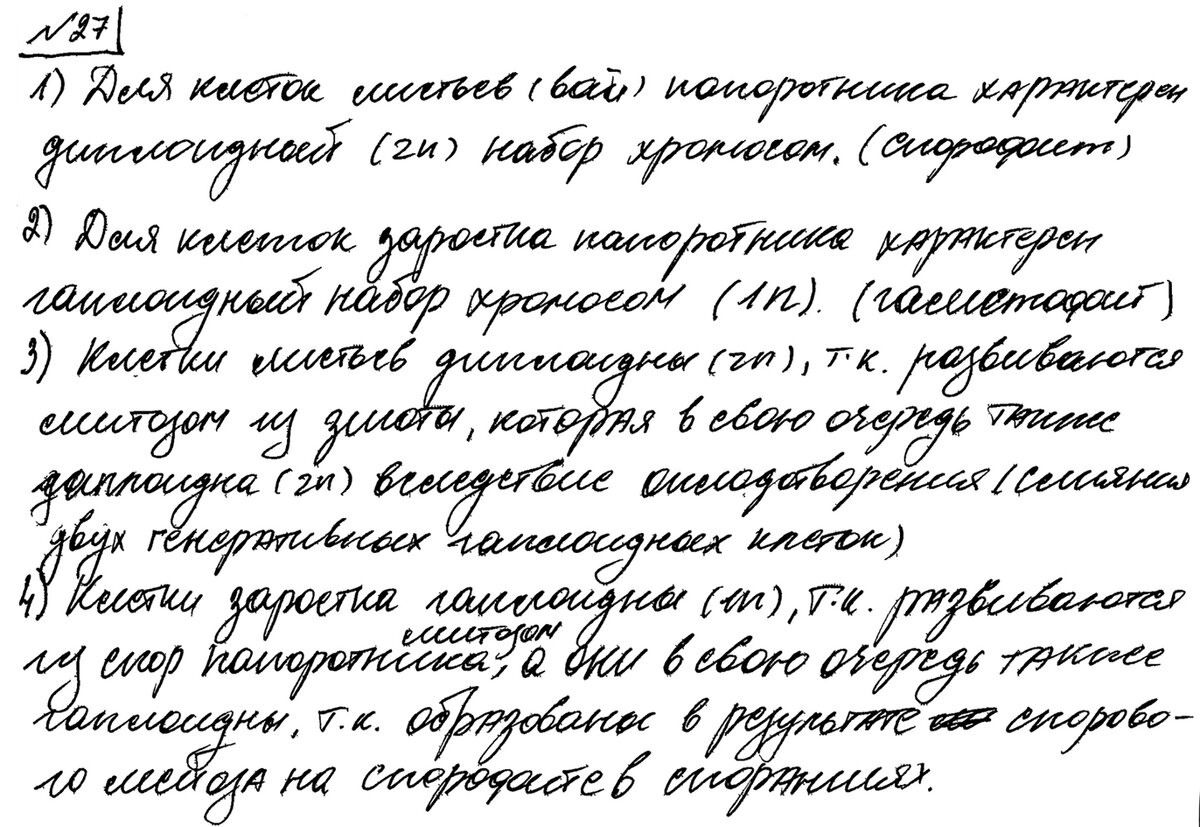 №27
1) Для клеток листьев (вай) папоротника характерен
диплоидный (2n) набор хромосом. (спорофит)
2) Для клеток заростка папоротника характерен
гаплоидный набор хромосом (1n). (гаметофит)
3) Клетки листьев диплоидны (2n), т.к. развиваются
митозом из зиготы, которая в свою очередь также
диплоидна (2n) вследствие оплодотворения (слияния
двух генеративных гаплоидных клеток)
4) Клетки заростка гаплоидны (1n), т.к. развиваются
митозом
из спор папоротника, а они в свою очередь также
гаплоидны, т.к. образованы в результате спорово-
го мейоза на спорофите в спорангиях.